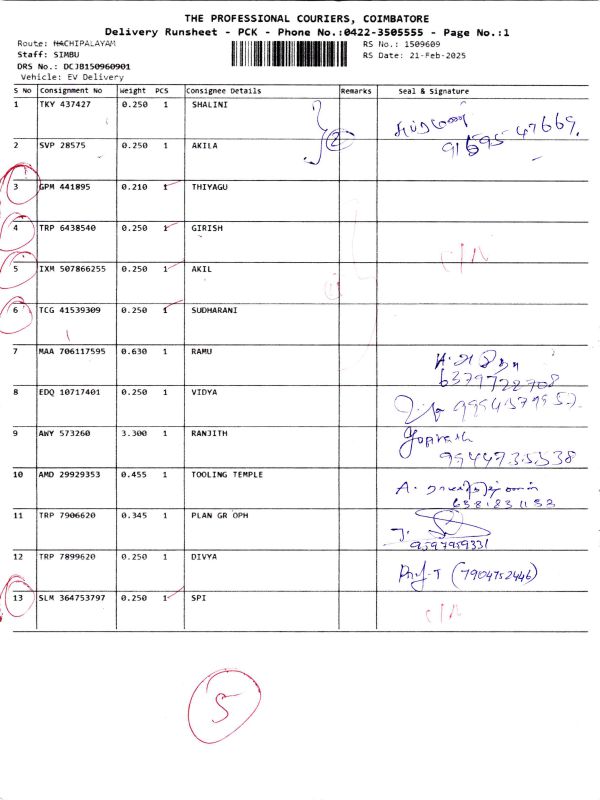 THE PROFESSIONAL COURIERS, COIMBATORE
Delivery Runsheet - PCK - Phone No.:0422-3505555 - Page No.:1
Route: NACHIPALAYAM RS No.: 1509609
Staff: SIMBU RS Date: 21-Feb-2025
DRS No.: DCJB150960901
Vehicle: EV Delivery
S No Consignment No Weight PCS Consignee Details Remarks Seal & Signature
1 TKY 437427 0.250 1 SHALINI
2 SVP 28575 0.250 1 AKILA 2
3 GPM 441895 0.210 1 THIYAGU
4 TRP 6438540 0.250 1 GIRISH
5 IXM 507866255 0.250 1 AKIL
6 TCG 41539309 0.250 1 SUDHARANI
7 MAA 706117595 0.630 1 RAMU
6379722708
8 EDQ 10717401 0.250 1 VIDYA
9 AWY 573260 3.300 1 RANJITH
10 AMD 29929353 0.455 1 TOOLING TEMPLE
11 TRP 7906620 0.345 1 PLAN GR OPH
9597959331
12 TRP 7899620 0.250 1 DIVYA (7904752446)
13 SLM 364753797 0.250 1 SPI
5